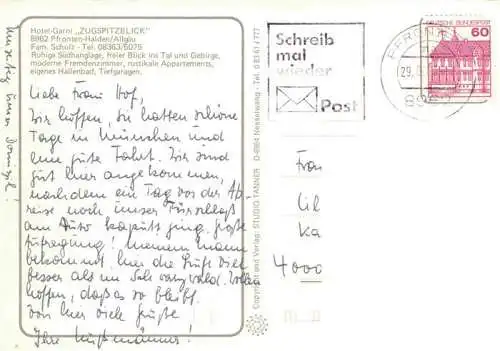 Hotel-Garni „ZUGSPITZBLICK"
8962 Pfronten-Halden/Allgäu
Fam. Schulz - Tel. 08363/5075
Ruhige Südhanglage, freier Blick ins Tal und Gebirge,
moderne Fremdenzimmer, rustikale Appartements,
eigenes Hallenbad, Tiefgaragen.
Liebe Frau Hof,
Wir hoffen, Sie hatten schöne
Tage in München und
eine gute Fahrt. Wir sind
gut hier angekommen,
nachdem ein Tag vor der Ab-
reise noch unser Türschloß
am Auto kaputt ging. große
Aufregung! Meinem Mann
bekommt hier die Luft viel
besser als im Schwarzwald. Wollen
hoffen, daß es so bleibt.
Von hier viele Grüße
Ihre
Unseter unser Domizil!
Copyright und Verlag: STUDIO TANNER D-8964 Nesselwang - Tel. 0 83 61 / 777
Schreib
mal
wieder
Post
PFRONTEN
29.
896
DEUTSCHE BUNDESPOST
60
Frau
Ul
Ka
4000